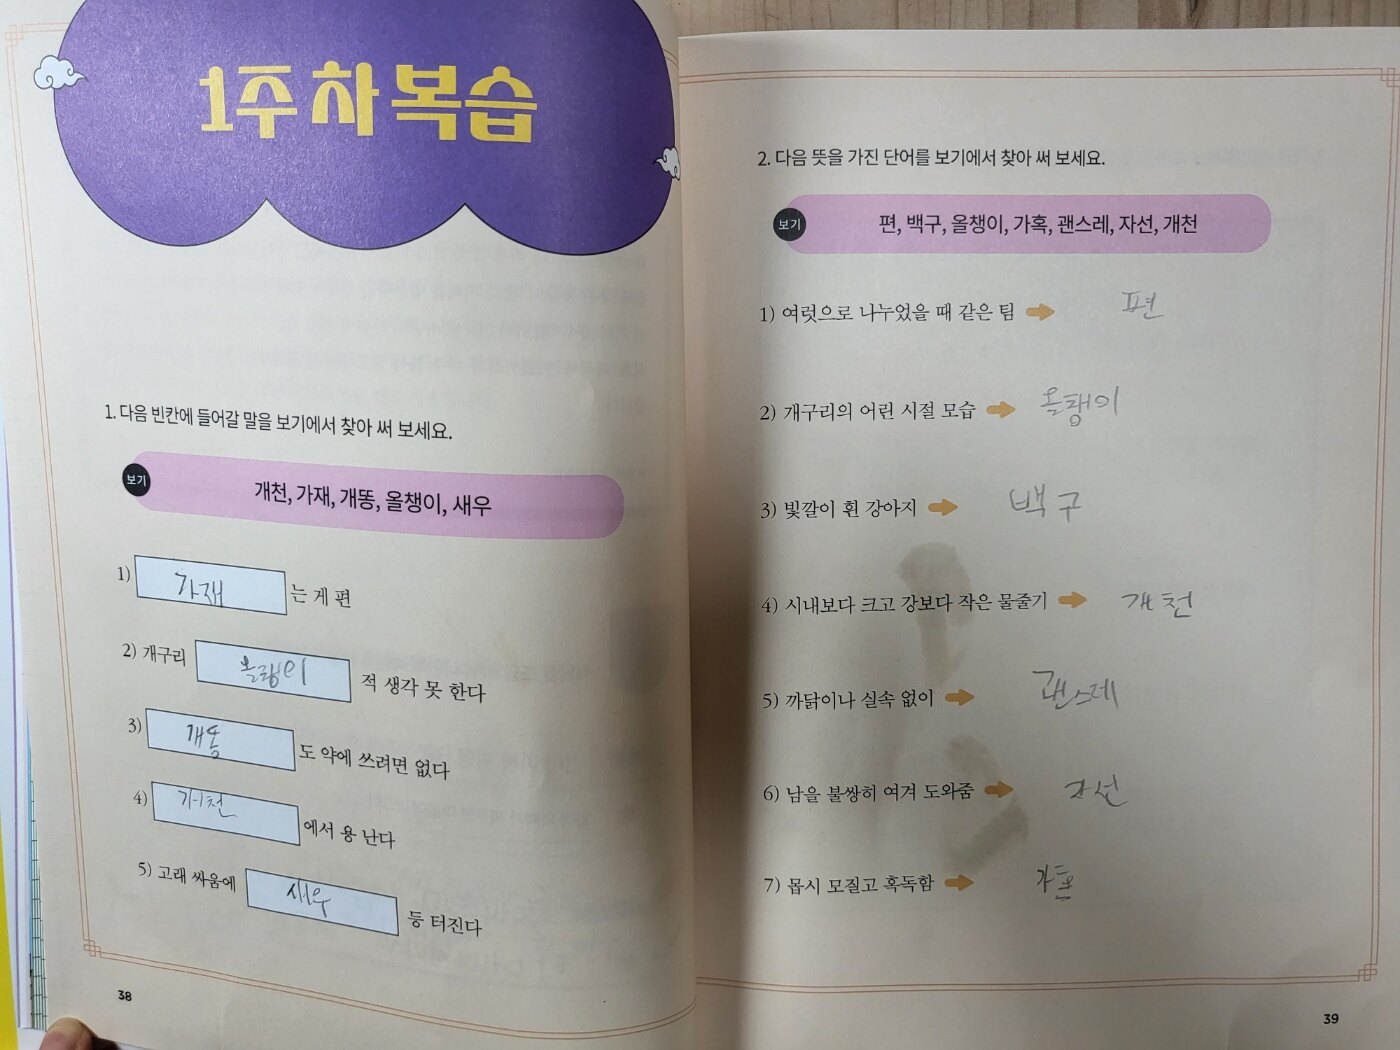 1주차 복습
1. 다음 빈칸에 들어갈 말을 보기에서 찾아 써 보세요.
보기
개천, 가재, 개똥, 올챙이, 새우
1) 가재 는 게 편
2) 개구리 올챙이 적 생각 못 한다
3) 개똥 도 약에 쓰려면 없다
4) 개천 에서 용 난다
5) 고래 싸움에 새우 등 터진다
38
2. 다음 뜻을 가진 단어를 보기에서 찾아 써 보세요.
보기
편, 백구, 올챙이, 가혹, 괜스레, 자선, 개천
1) 여럿으로 나누었을 때 같은 팀 편
2) 개구리의 어린 시절 모습 올챙이
3) 빛깔이 흰 강아지 백구
4) 시내보다 크고 강보다 작은 물줄기 개천
5) 까닭이나 실속 없이 괜스레
6) 남을 불쌍히 여겨 도와줌 자선
7) 몹시 모질고 혹독함 가혹
39